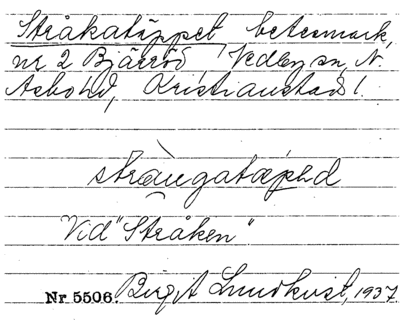 Stråkatäppet betesmark,
nr 2 Bjärröd Vedby sn, N.
Åsbo hd, Kristianstads l.
strångatæpəd
Vid "Stråken"
Nr 5506. Birgit Lundkvist, 1937